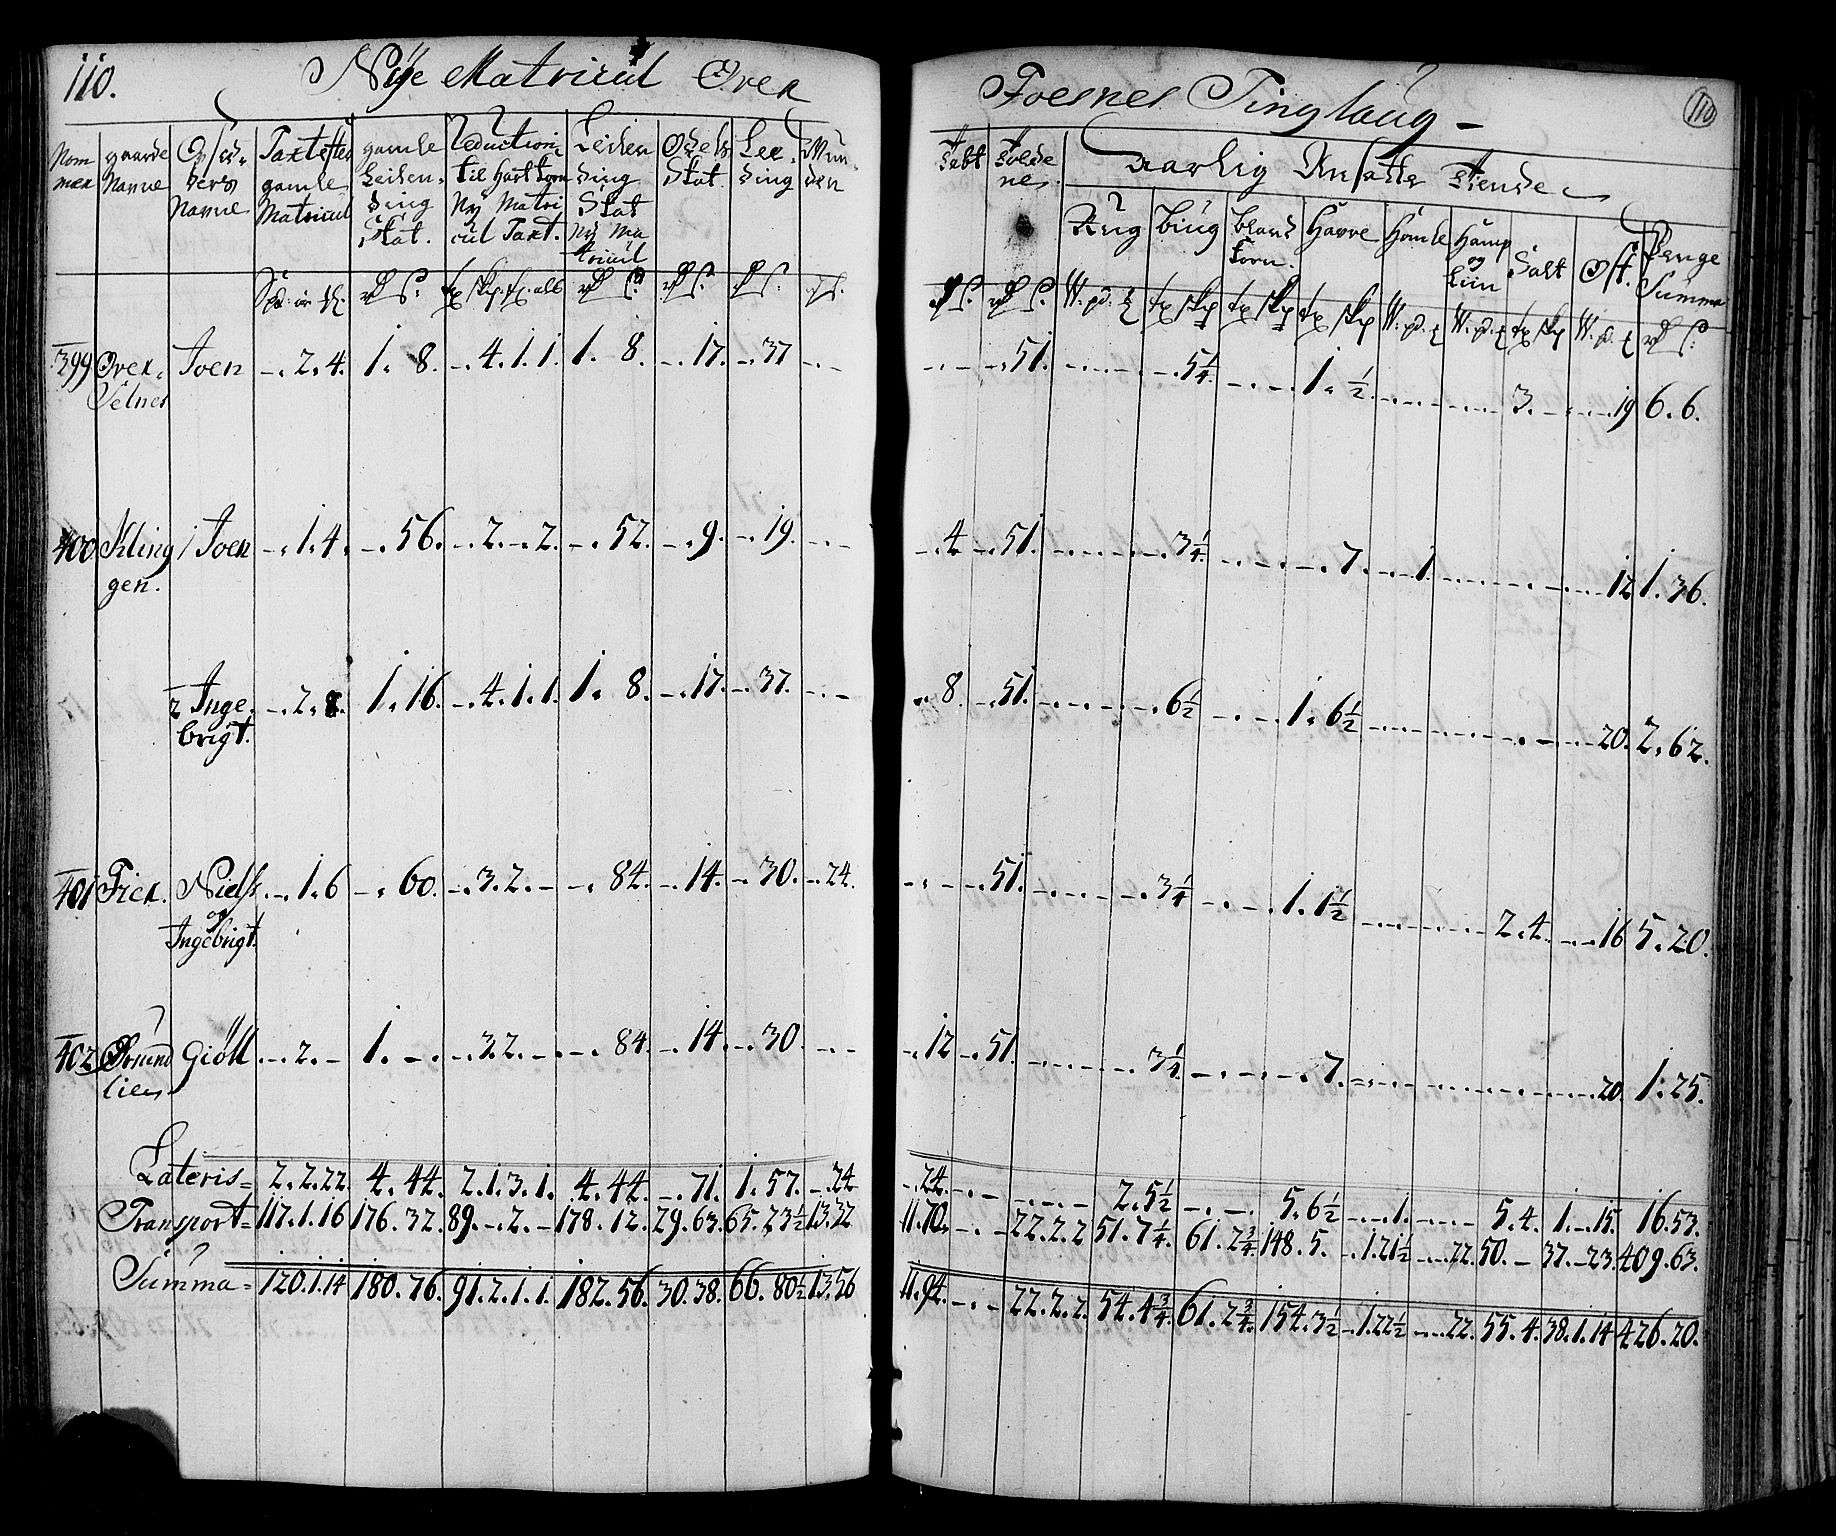 110. Nÿe Matricul Over Foesnes Tinglaug 110
Nom mer | gaarde Navne | Opsid. ders Navne | Taxt efter gamle Matricul | gamle Leilen. ding Skat. | Reductions til hart korn Ny Matri cul Taxt. | Leilen ding Skat Ny Ma tricul | Odels Skat. | Lee. ding | Mun den
Aarlig Ansatte Tiende
Rug | biug | bland korn. | Havre | Homle | Hamp og Liin | Salt | Ost. | Penge Summa
399 Over. Selnes | Joen | -. 2. 4. | 1. 8. | -. 4. 1. 1. | 1. 8. | -. 17. | -. 37 | -. - | -. - | -. 51. | 5 1/4. | 1. 1/2 | 3. | 19 | 6. 6.
400 Kling gen. | 1 Joen | -. 1. 4. | -. 56. | -. 2. -. 2. | -. 52. | -. 9. | -. 19. | -. - | -. 4. | -. 51. | 3 1/4. | 7. | 1. | 12 | 1. 36.
2 Inge. brigt. | -. 2. 8. | 1. 16. | -. 4. 1. 1. | 1. 8. | -. 17. | -. 37. | -. - | -. 8. | -. 51. | 6 1/2 | 1. 6 1/2 | 20. | 2. 62.
401 Fier. | Niels og Ingebrigt. | -. 1. 6 | -. 60. | -. 3. 2. - | -. 84. | -. 14. | -. 30. | -. 24. | -. - | -. 51. | 3 1/4 | 1. 1 1/2 | 2. 4. | 16 | 5. 20.
402 lien | Giöll | -. 2. - | 1. -. | -. 3 2. - | -. 84. | -. 14. | -. 30. | -. - | -. 12 | -. 51. | 3 1/4. | 7. | 20. | 1. 25.
Lateris = 2. 2. 22. | 4. 44. | 2. 1. 3. 1. | 4. 44. | -. 71. | 1. 57. | -. 24 | -. 24. | -. - | 2. 5 1/2 | 5. 6 1/2 | 1. | 5. 4. | 1. -. 15. | 16. 53.
Transport = 117. 1. 16 | 176. 32. | 89. -. 2. - | 178. 12. | 29. 63. | 65. 23 1/2 | 13. 32 | 11. 70. | -. - | 22. 2. 2 | 51. 7 1/4. | 61. 2 3/4. | 148. 5. | -. 1. 21 1/2 | 22. | 50. - | 37. -. 23. | 409. 63.
Summa = 120. 1. 14 | 180. 76. | 91. 2. 1. 1. | 182. 56. | 30. 38. | 66. 80 1/2 | 13. 56 | 11. 94. | -. - | 22. 2. 2. | 54. 4 3/4. | 61. 2 3/4. | 154. 3 1/2 | -. 1. 22 1/2 | 22. | 55. 4. | 38. 1. 14 | 426. 20.